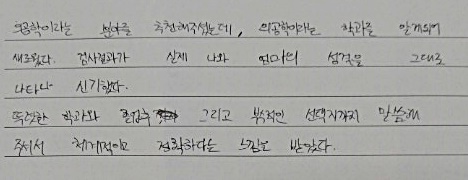 의공학이라는 분야를 추천해주셨는데, 의공학이라는 학과를 알게되어
새로웠다. 검사결과가 실제 나와 엄마의 성격을 그대로
나타나 신기했다.
뚜렷한 학과와 그리고 부수적인 선택지까지 말씀해
주셔서 체계적이고 정확하다는 느낌을 받았다.